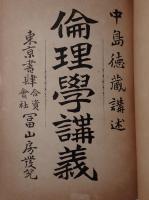 中島德藏講述
倫理學講義
東京書肆合資會社冨山房發兌